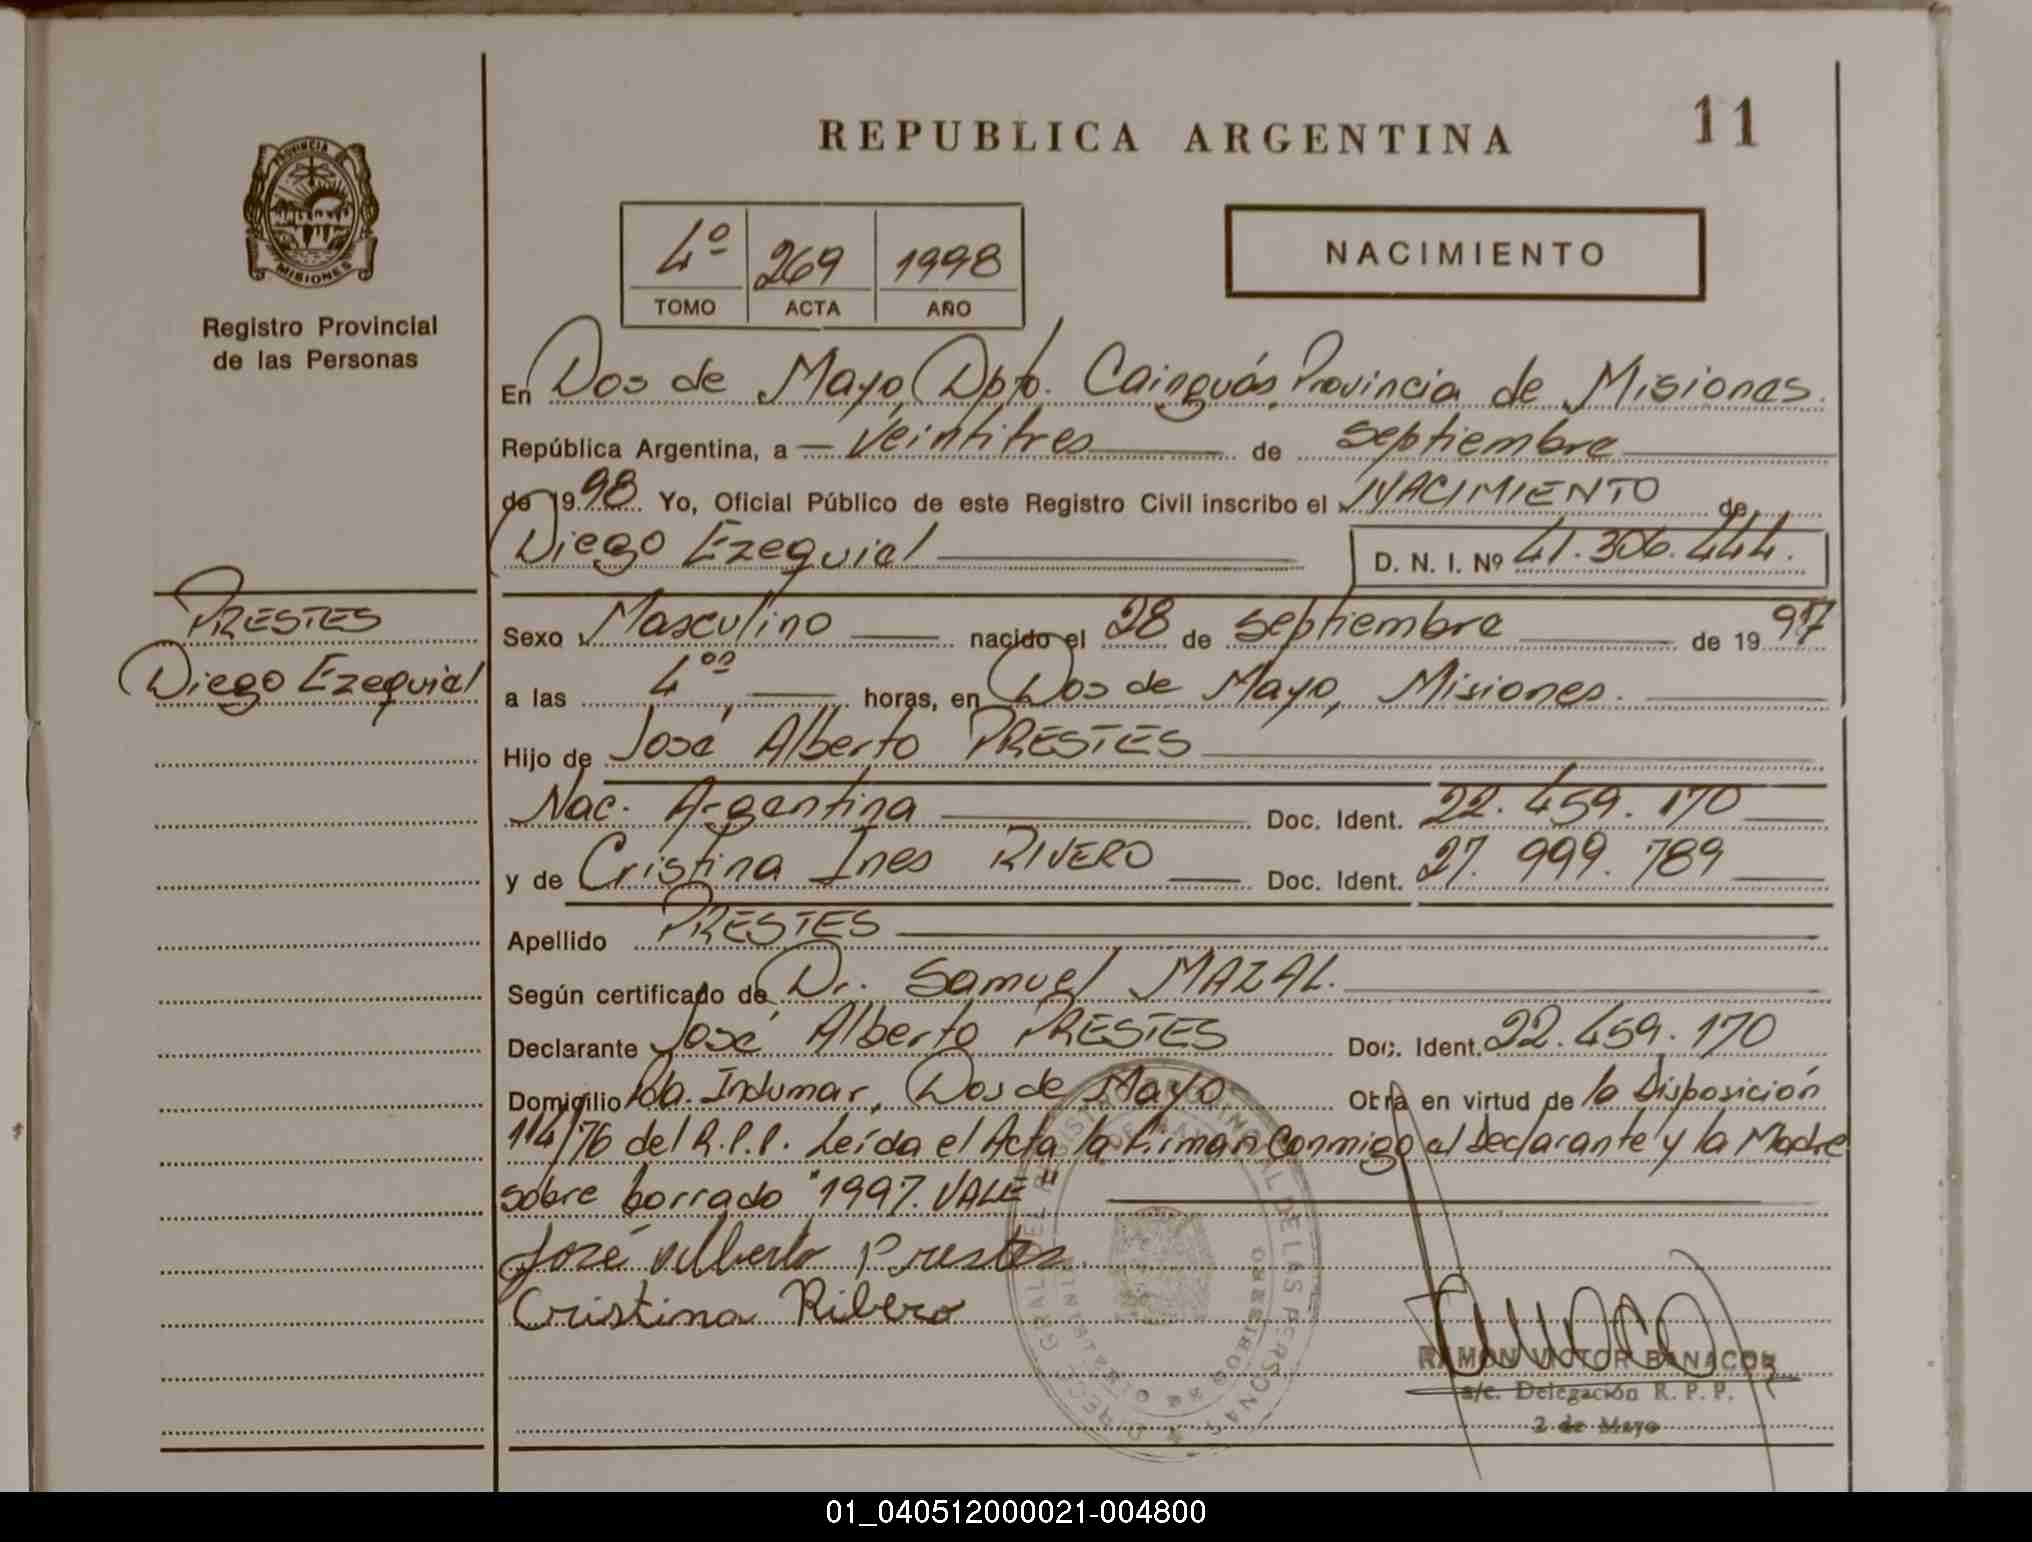 REPUBLICA ARGENTINA
11
PROVINCIA DE
MISIONES
Registro Provincial
de las Personas
4º 269 1998
TOMO ACTA AÑO
NACIMIENTO
En Dos de Mayo, Dpto. Cainguás, Provincia de Misiones.
República Argentina, a — Veintitres de septiembre
de 1998 Yo, Oficial Público de este Registro Civil inscribo el NACIMIENTO de
Diego Ezequiel D. N. I. Nº 41.306.444.
PRESTES
Diego Ezequiel
Sexo Masculino nacido el 28 de septiembre de 1997
a las 4ºº horas, en Dos de Mayo, Misiones.
Hijo de José Alberto PRESTES
Nac. Argentina Doc. Ident. 22.459.170
y de Cristina Ines RIVERO Doc. Ident. 27.999.789
Apellido PRESTES
Según certificado de Dr. Samuel MAZAL.
Declarante José Alberto PRESTES Doc. Ident. 22.459.170
Domicilio Pda. Indumar, Dos de Mayo Obra en virtud de la Disposición
114/76 del R.P.P. Leída el Acta la Firman Conmigo el Declarante y la Madre
sobre borrado "1997. VALE"
José Alberto Prestes.
Cristina Ribero
RAMON VICTOR BANACOR
a/c. Delegación R. P. P.
2 de Mayo
01_040512000021-004800